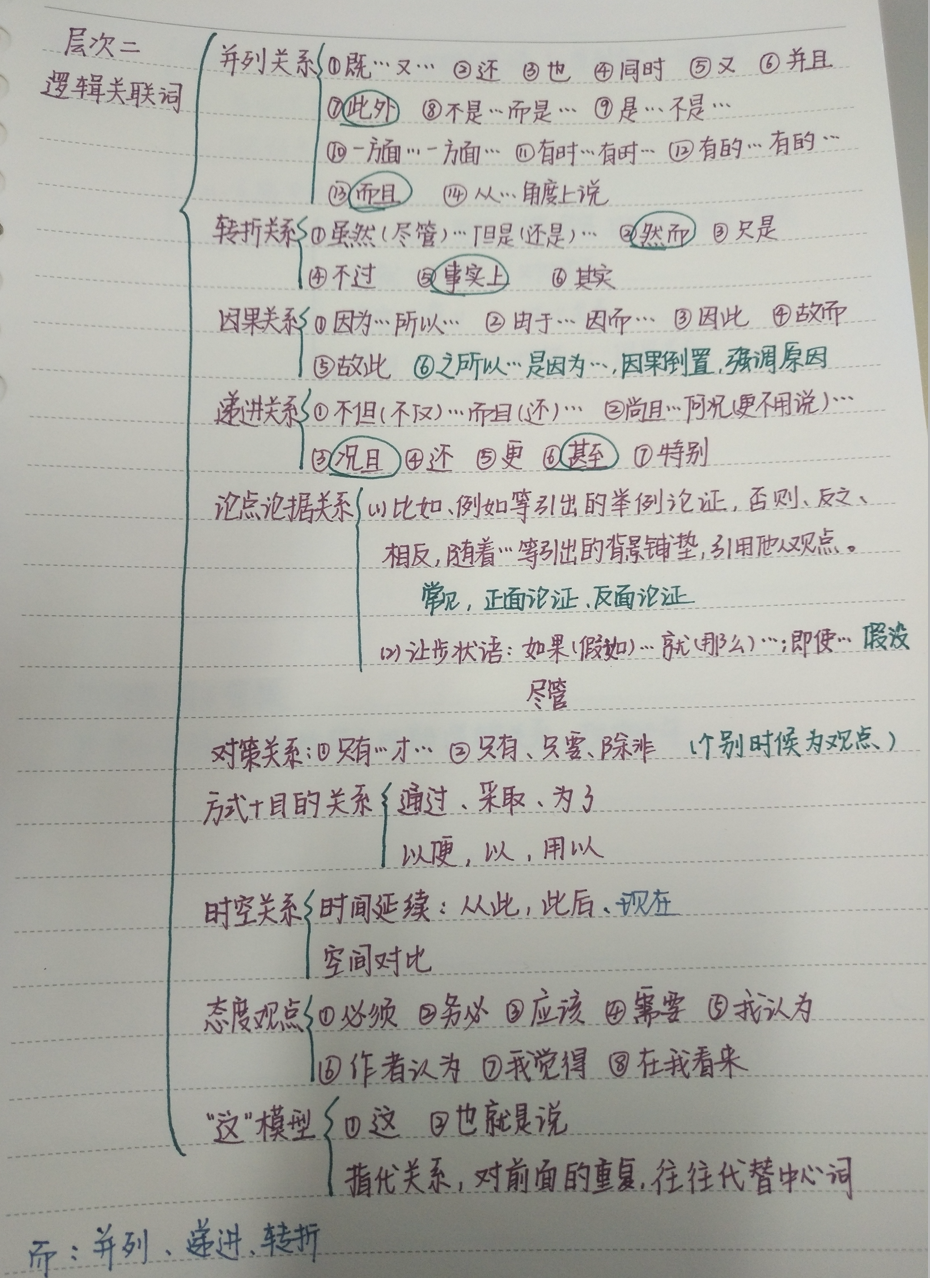 层次二
逻辑关联词
并列关系 ①既…又… ②还 ③也 ④同时 ⑤又 ⑥并且
⑦此外 ⑧不是…而是… ⑨是…不是…
⑩一方面…一方面… ⑪有时…有时… ⑫有的…有的…
⑬而且 ⑭从…角度上说
转折关系 ①虽然(尽管)…但是(还是)… ②然而 ③只是
④不过 ⑤事实上 ⑥其实
因果关系 ①因为…所以… ②由于…因而… ③因此 ④故而
⑤故此 ⑥之所以…是因为…,因果倒置,强调原因
递进关系 ①不但(不仅)…而且(还)… ②尚且…何况(更不用说)…
③况且 ④还 ⑤更 ⑥甚至 ⑦特别
论点论据关系 (1)比如、例如等引出的举例论证,否则、反之、
相反,随着…等引出的背景铺垫,引用他人观点。
常见,正面论证、反面论证
(2)让步状语:如果(假如)…就(那么)…;即使… 假设
尽管
对策关系:①只有…才… ②只有、只要、除非 (个别时候为观点)
方式+目的关系 通过、采取、为了
以便,以,用以
时空关系 时间延续:从此,此后、现在
空间对比
态度观点 ①必须 ②务必 ③应该 ④需要 ⑤我认为
⑥作者认为 ⑦我觉得 ⑧在我看来
“这”模型 ①这 ②也就是说
指代关系,对前面的重复,往往代替中心词
而:并列、递进、转折